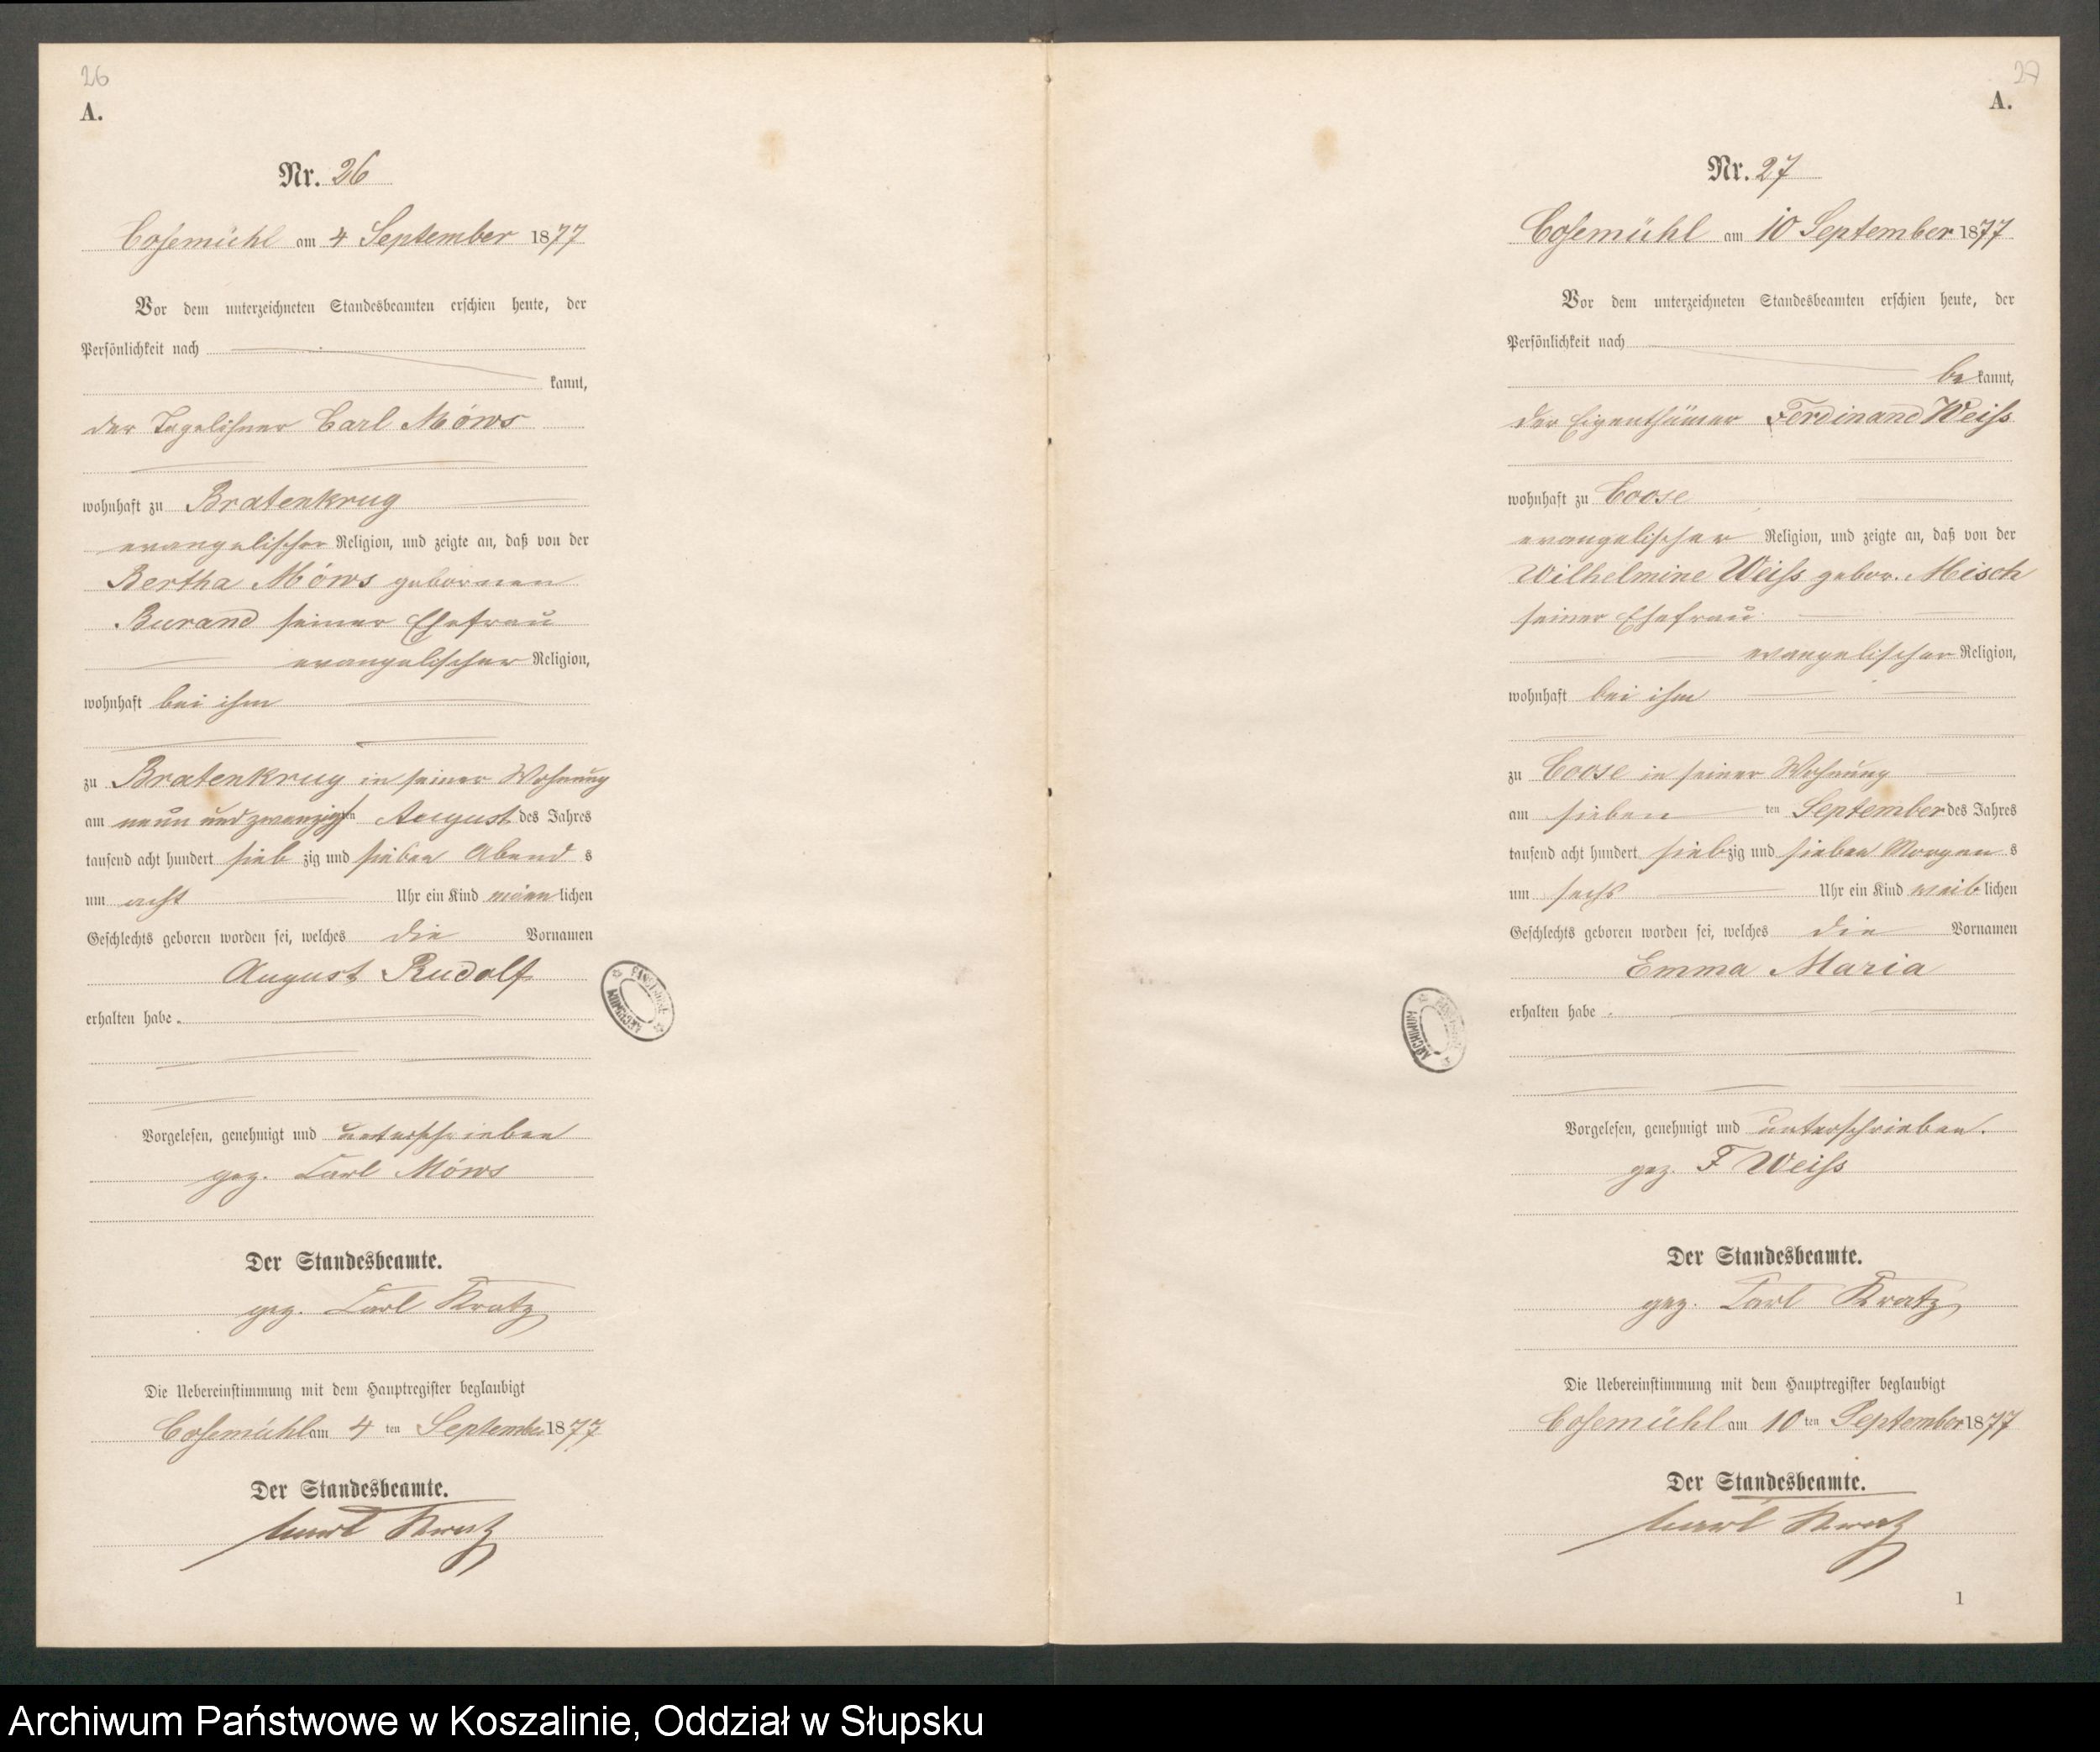 26
A.
Nr. 26
Cosemühl am 4 September 1877
Vor dem unterzeichneten Standesbeamten erschien heute, der
Persönlichkeit nach
kannt,
der Tagelöhner Carl Möws
wohnhaft zu Bratenkrug
evangelischer Religion, und zeigte an, daß von der
Bertha Möws gebornen
Burand seiner Ehefrau
evangelischer Religion,
wohnhaft bei ihm
zu Bratenkrug in seiner Wohnung
am neun und zwanzigsten August des Jahres
tausend acht hundert siebzig und sieben Abends
um acht Uhr ein Kind männlichen
Geschlechts geboren worden sei, welches die Vornamen
August Rudolf
erhalten habe.
Vorgelesen, genehmigt und unterschrieben
gez. Carl Möws
Der Standesbeamte.
gez. Carl Kratz
Die Uebereinstimmung mit dem Hauptregister beglaubigt
Cosemühl am 4 ten September 1877
Der Standesbeamte.
Carl Kratz
ARCHIWUM PAŃSTWOWE
27
A.
Nr. 27
Cosemühl am 10 September 1877
Vor dem unterzeichneten Standesbeamten erschien heute, der
Persönlichkeit nach
be kannt,
der Eigenthümer Ferdinand Weiss
wohnhaft zu Coose
evangelischer Religion, und zeigte an, daß von der
Wilhelmine Weiss gebor. Misch
seiner Ehefrau
evangelischer Religion,
wohnhaft bei ihm
zu Coose in seiner Wohnung
am sieben ten September des Jahres
tausend acht hundert siebzig und sieben Morgens
um sechs Uhr ein Kind weiblichen
Geschlechts geboren worden sei, welches die Vornamen
Emma Maria
erhalten habe.
Vorgelesen, genehmigt und unterschrieben.
gez. F Weiss
Der Standesbeamte.
gez. Carl Kratz
Die Uebereinstimmung mit dem Hauptregister beglaubigt
Cosemühl am 10 ten September 1877
Der Standesbeamte.
Carl Kratz
1
ARCHIWUM PAŃSTWOWE
Archiwum Państwowe w Koszalinie, Oddział w Słupsku